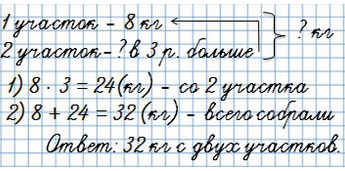 1 участок - 8 кг
? кг
2 участок - ? в 3 р. больше
1) 8 · 3 = 24 (кг) - со 2 участка
2) 8 + 24 = 32 (кг) - всего собрали
Ответ: 32 кг с двух участков.